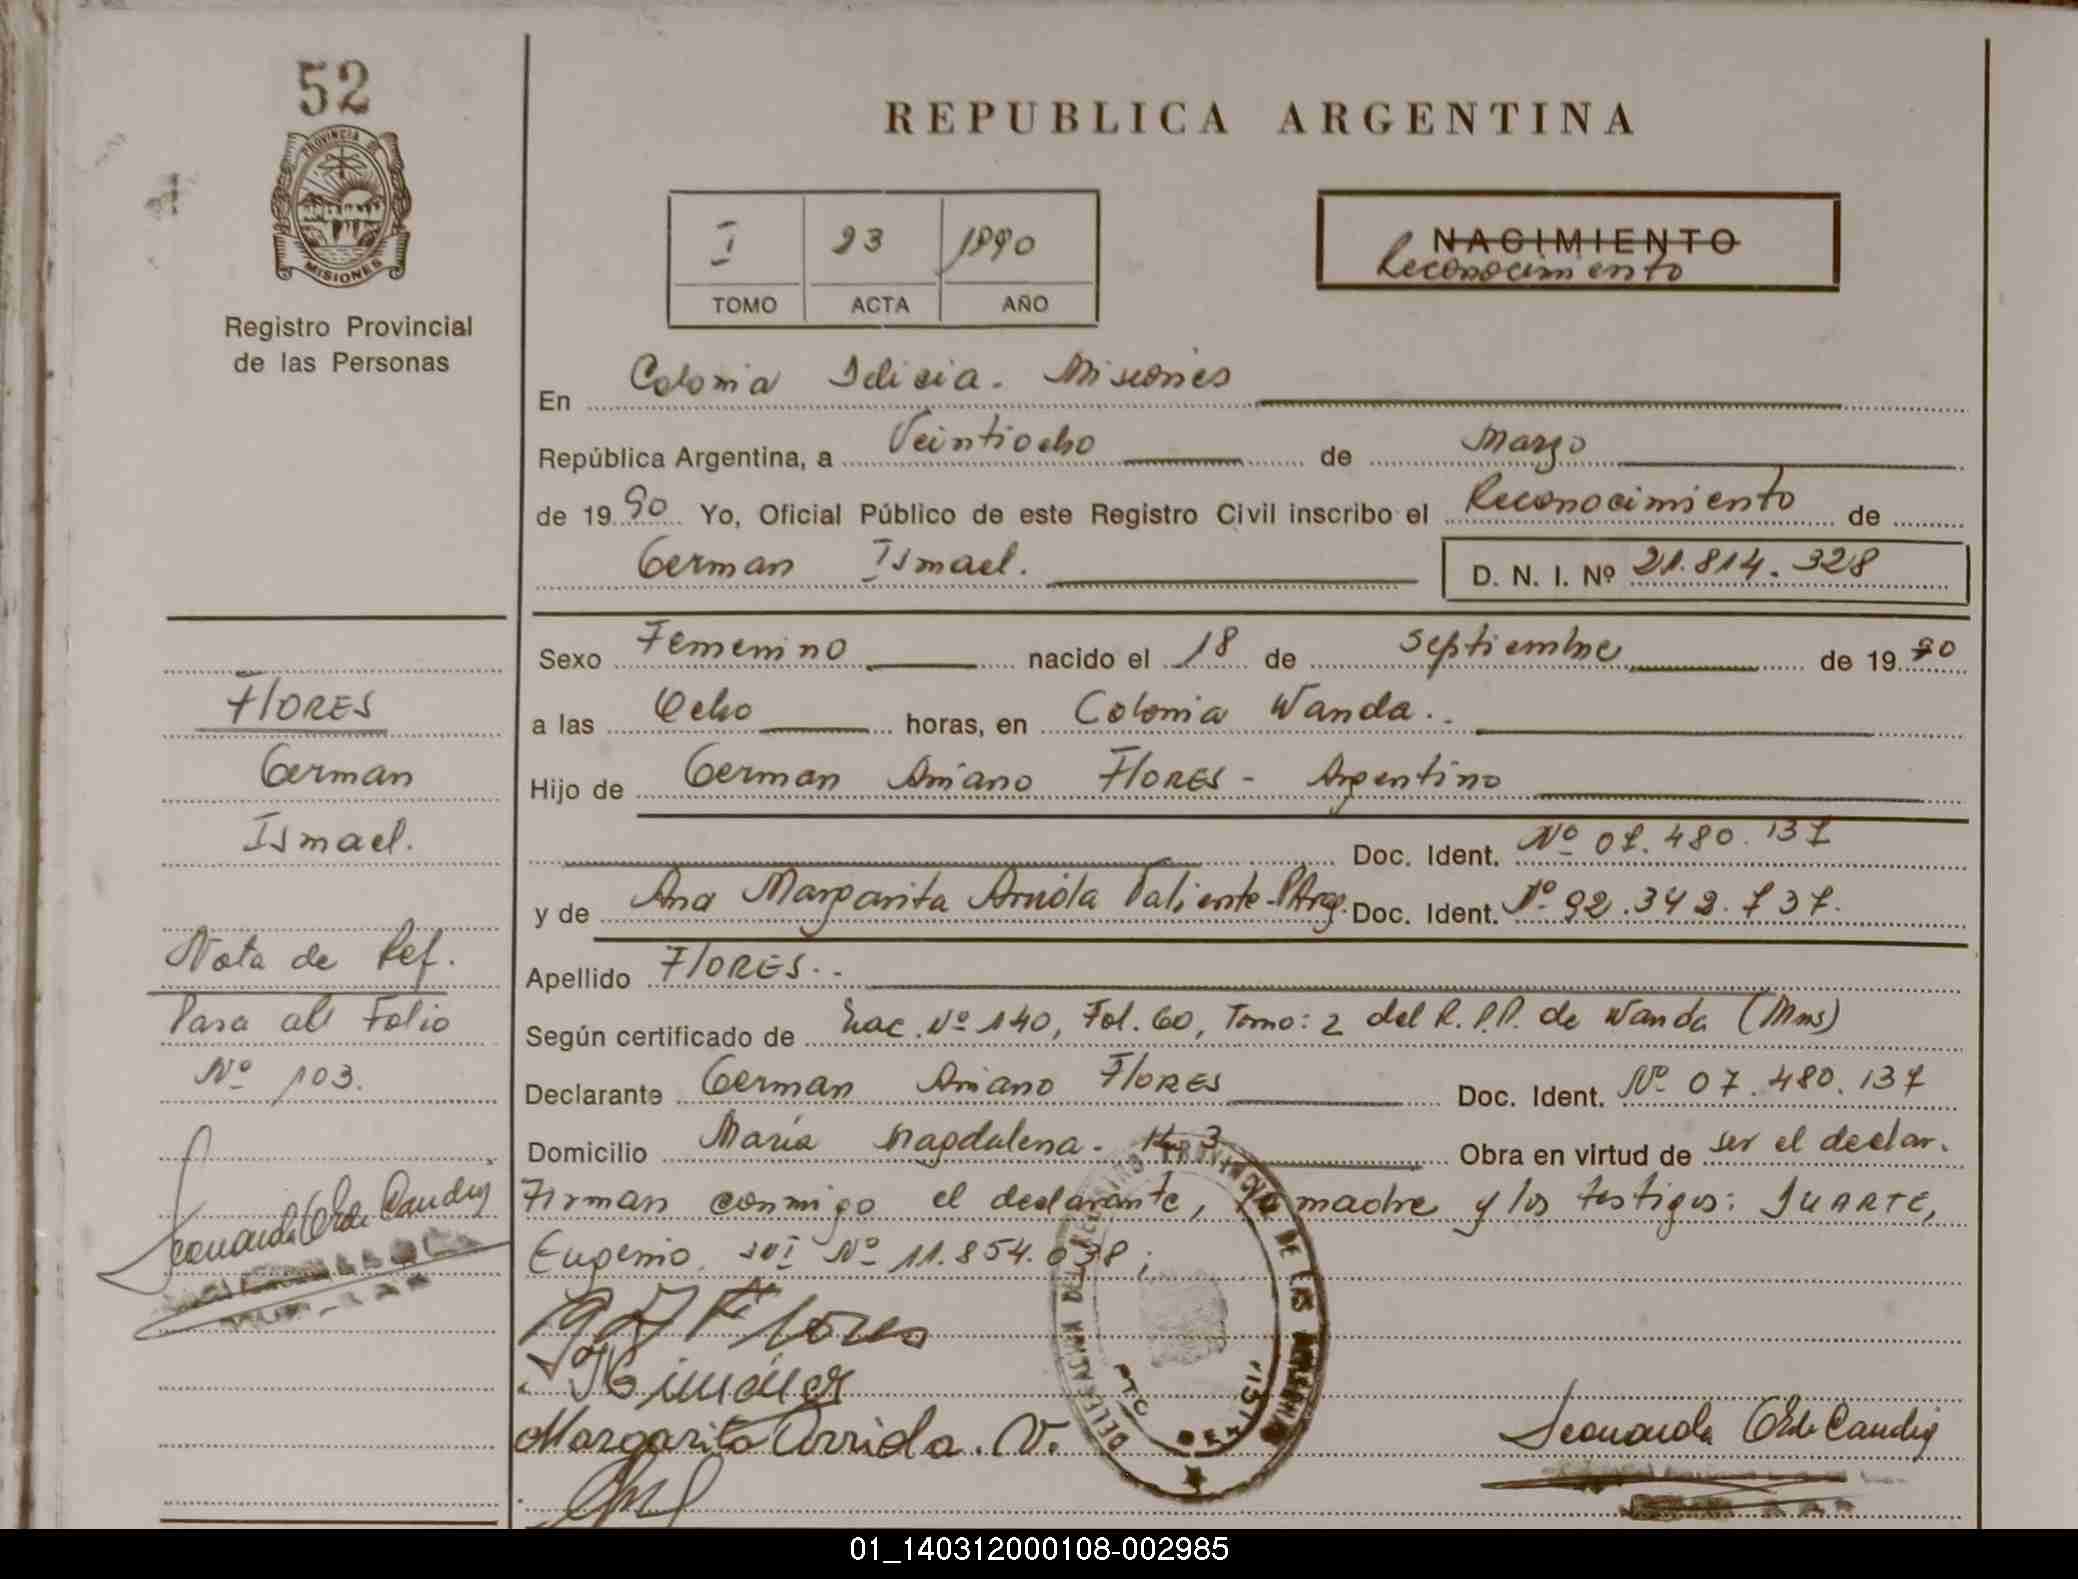 52
PROVINCIA DE
MISIONES
Registro Provincial
de las Personas
REPUBLICA ARGENTINA
I 23 1990
TOMO ACTA AÑO
NACIMIENTO
Reconocimiento
En Colonia Delicia. Misiones
República Argentina, a Veintiocho de Marzo
de 1990 Yo, Oficial Público de este Registro Civil inscribo el Reconocimiento de
German Ismael. D. N. I. Nº 21.814.328
Sexo Femenino nacido el 18 de septiembre de 1970
a las Ocho horas, en Colonia Wanda.
Hijo de German Aniano FLORES - Argentino
Doc. Ident. Nº 07.480.137
y de Ana Margarita Arriola Valiente - Doc. Ident. Nº 92.342.737.
Apellido FLORES..
Según certificado de Nac. Nº 140, Fol. 60, Tomo: 2 del R.P.P. de Wanda (Mnes)
Declarante German Aniano FLORES Doc. Ident. Nº 07.480.137
Domicilio María Magdalena - K 3 Obra en virtud de ser el declar.
Firman conmigo el declarante, la madre y los testigos: DUARTE,
Eugenio DNI Nº 11.854.038;
Flores
Margarita Arriola. V.
FLORES
German
Ismael.
Nota de Ref.
Pasa al Folio
Nº 103.
01_140312000108-002985